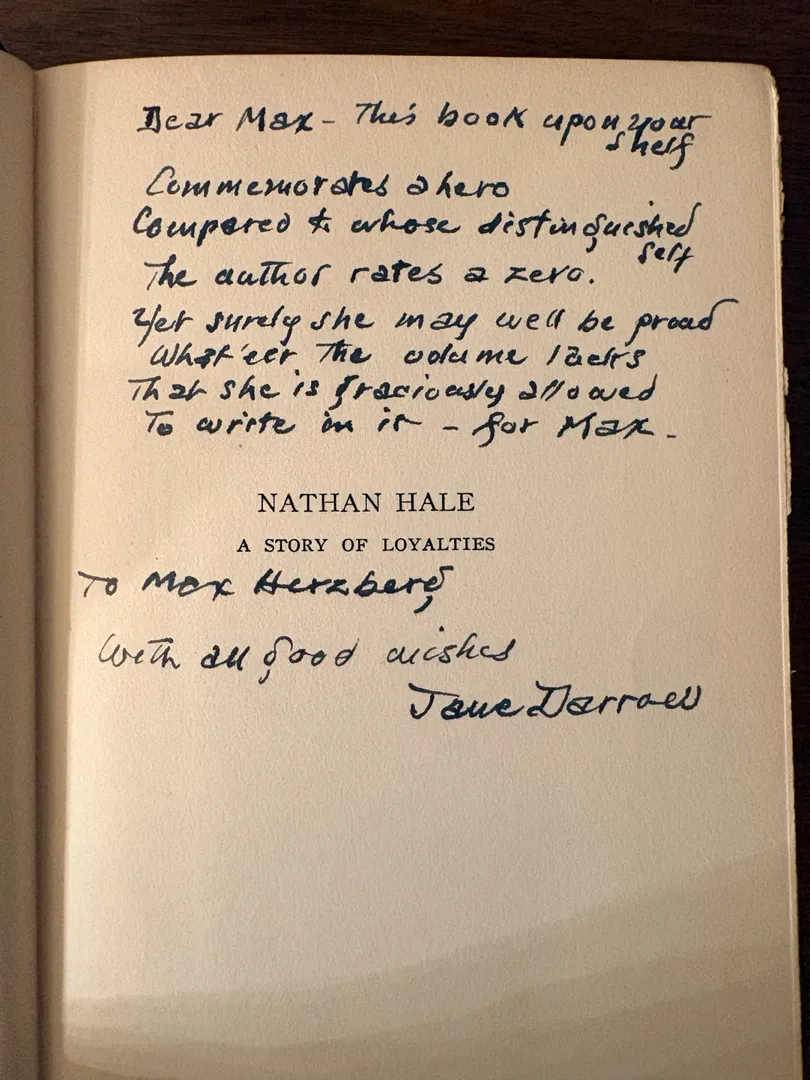 Dear Max - This book upon your
shelf
Commemorates a hero
Compared to whose distinguished
self
The author rates a zero.
Yet surely she may well be proud
What'eer the volume lacks
That she is graciously allowed
To write in it - for Max -
NATHAN HALE
A STORY OF LOYALTIES
To Max Herzberg
With all good wishes
Jane Darrow